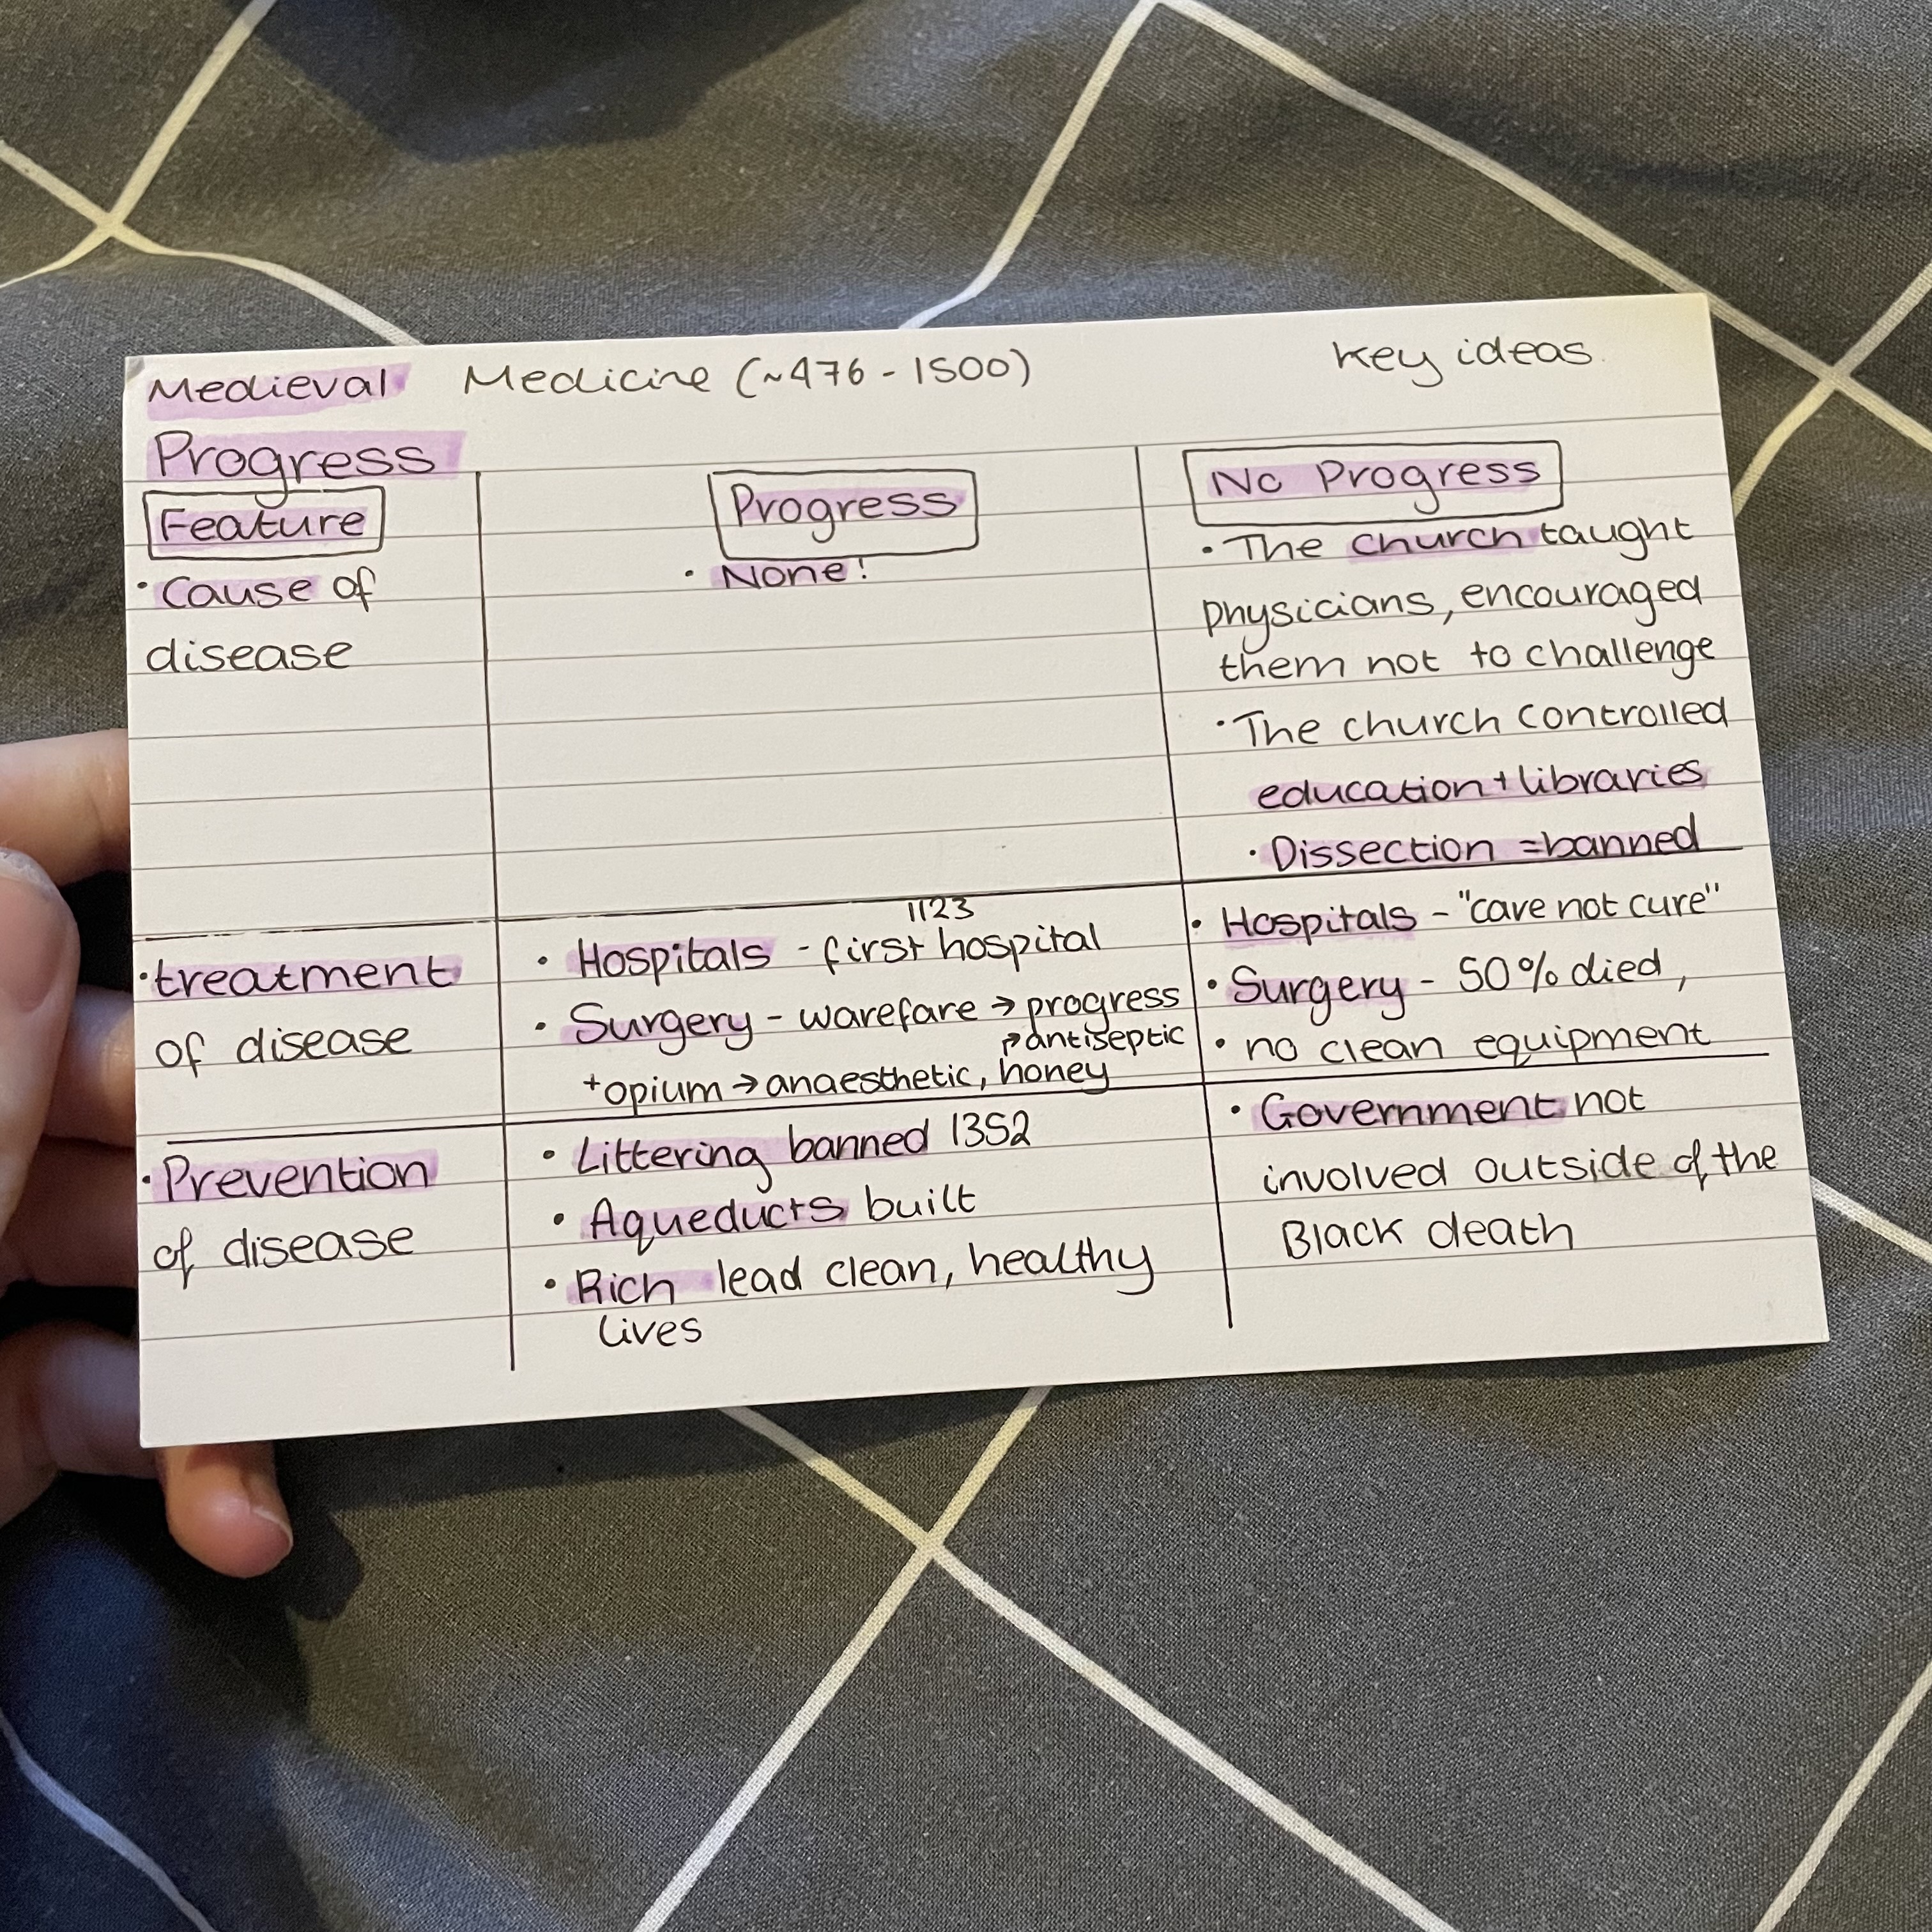 Medieval Medicine (~476 - 1500) Key ideas
Progress
Feature
Progress
No Progress
• Cause of
disease
• None!
• The church taught
physicians, encouraged
them not to challenge
• The church controlled
education + libraries
• Dissection = banned
• treatment
of disease
1123
• Hospitals - first hospital
• Surgery - warefare → progress
↱antiseptic
+opium → anaesthetic, honey
• Hospitals - "care not cure"
• Surgery - 50% died,
• no clean equipment
• Prevention
of disease
• Littering banned 1352
• Aqueducts built
• Rich lead clean, healthy
lives
• Government not
involved outside of the
Black death